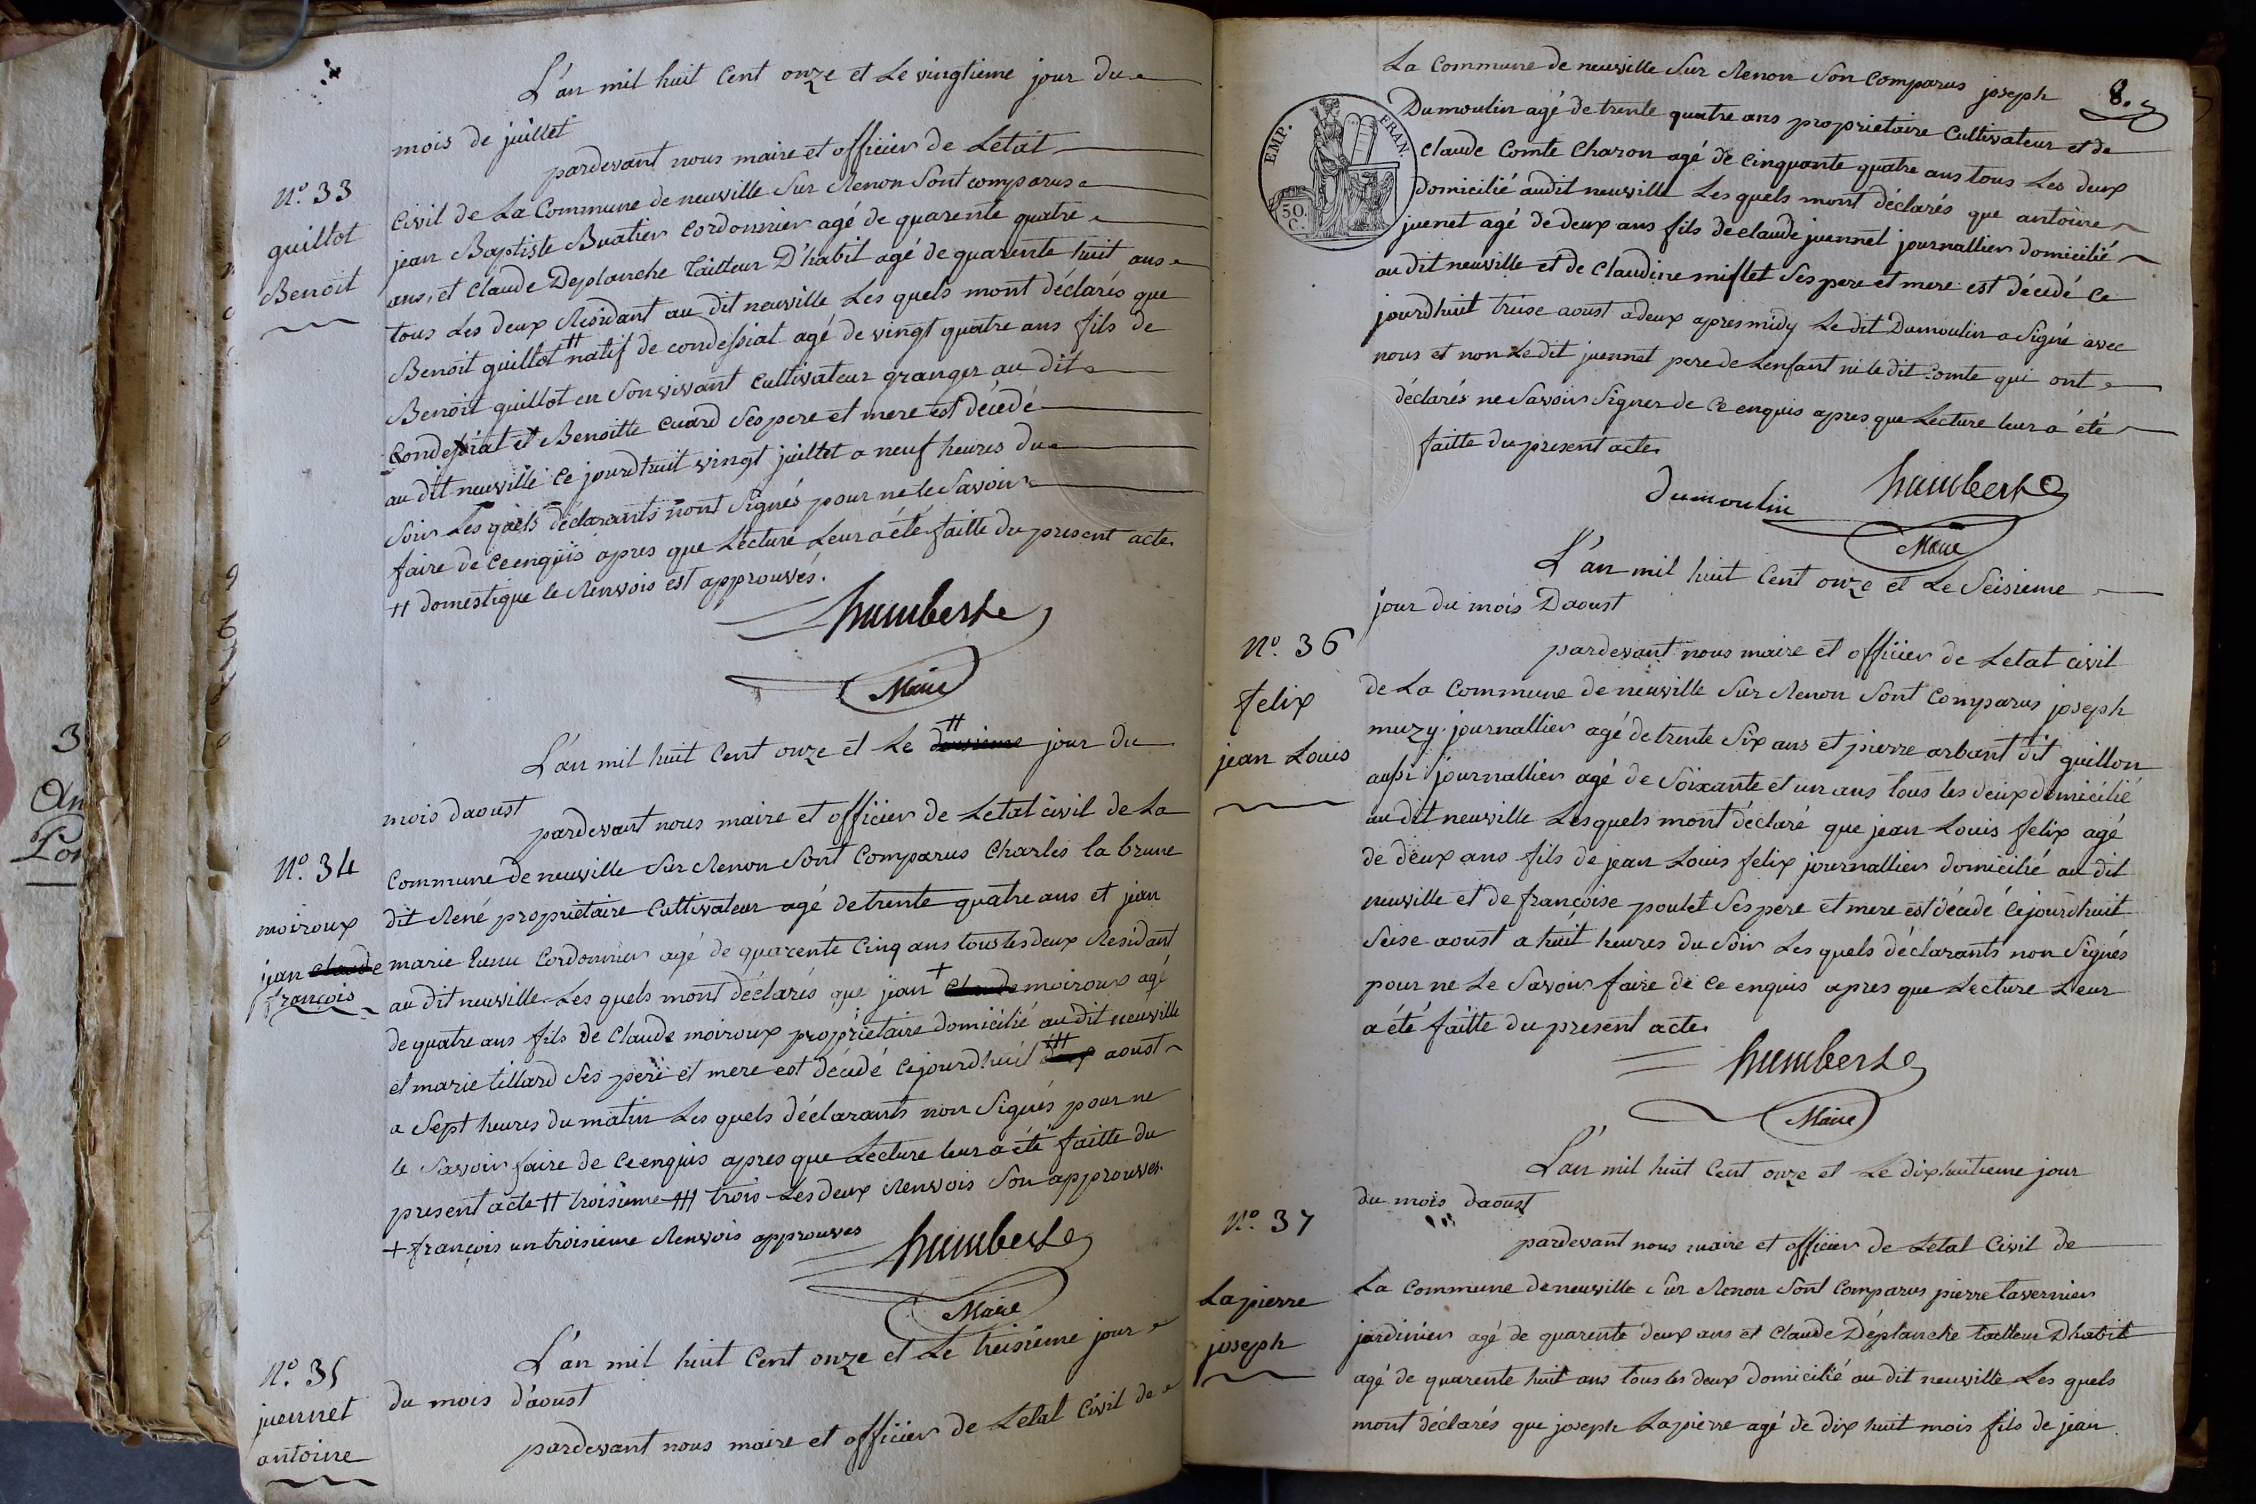 L'an mil huit Cent onze et Le vingtieme jour du
mois de juillet
pardevant nous maire et officier de Letat
N.º 33
guillot
Benoit
Civil de La Commune de neuville Sur Renon Sont comparus
jean Baptiste Buatier Cordonnier agé de quarente quatre
ans, et Claude Deplanche Tailleur D'habit agé de quarente huit ans
tous Les deux Residant au dit neuville Les quels mont déclarés que
Benoit guillot # natif de condessiat agé de vingt quatre ans fils de
Benoit guillot en Son vivant Cultivateur granger au dit
Condessiat et Benoitte Cuard Ses pere et mere est décédé
au dit neuville Ce jourdhuit vingt juillet a neuf heures du
Soir Les quels déclarants nont Signés pour ne le Savoir
faire de Ce enquis apres que Lecture Leur a été faitte du present acte.
# domestique le Renvois est approuvés.
humbert
Maire
L'an mil huit Cent onze et Le # deusieme jour du
mois daoust
pardevant nous maire et officier de Letat civil de La
N.º 34
moiroux
jean claude
françois
Commune de neuville Sur Renon Sont Comparus Charles la brune
dit René propriétaire Cultivateur agé de trente quatre ans et jean
marie Cordonnier agé de quarente Cinq ans tous les deux Residant
au dit neuville Les quels mont déclarés que jean + claude moiroux agé
de quatre ans fils de Claude moiroux propriétaire domicilié au dit neuville
et marie tillard Ses pere et mere est décédé Cejourdhuit # deux aoust
a Sept heures du matin Les quels déclarants non Signés pour ne
le Savoir faire de Ce enquis apres que Lecture leur a été faitte du
present acte # troisieme # trois Les deux Renvois Son approuves.
+ françois un troisieme Renvois approuves
humbert
Maire
N.º 35
juennet
antoine
L'an mil huit Cent onze et Le treisieme jour
du mois d'aoust
pardevant nous maire et officier de Letat Civil de
8.
La Commune de neuville Sur Renon Son Comparus joseph
EMP. FRAN.
50.
C.
Dumoulin agé de trente quatre ans propriétaire Cultivateur et de
Claude Comte Charon agé de Cinquante quatre ans tous Les deux
domicilié audit neuville Les quels mont déclarés que antoine
juenet agé de deux ans fils de claude juennet journallier domicilié
au dit neuville et de Claudine miflet Ses pere et mere est décédé Ce
jourdhuit treise aoust a deux apres midy Le dit Dumoulin a Signé avec
nous et non Le dit juennet pere de Lenfant ni le dit Comte qui ont
déclarés ne Savoir Signer de Ce enquis apres que Lecture leur a été
faitte du present acte.
dumoulin humbert
Maire
L'an mil huit Cent onze et Le Seisieme
jour du mois Daoust
pardevant nous maire et officier de Letat civil
N.º 36
felix
jean Louis
de La Commune de neuville Sur Renon Sont Comparus joseph
muzy journallier agé de trente Six ans et pierre arbant dit guillon
aussi journallier agé de Soixante et un ans tous les deux domicilié
au dit neuville Les quels mont déclaré que jean Louis felix agé
de deux ans fils de jean Louis felix journallier domicilié au dit
neuville et de françoise poulet Ses pere et mere est décédé Cejourdhuit
Seise aoust a huit heures du Soir Les quels déclarants non Signés
pour ne Le Savoir faire de Ce enquis apres que Lecture Leur
a été faitte du present acte.
humbert
Maire
L'an mil huit Cent onze et Le dixhuitieme jour
du mois daoust
N.º 37
pardevant nous maire et officier de Letat Civil de
Lapierre
joseph
La Commune de neuville Sur Renon Sont Comparus pierre tavernier
jardinier agé de quarente deux ans et Claude Déplanche tailleur Dhabit
agé de quarente huit ans tous les deux domicilié au dit neuville Les quels
mont déclarés que joseph Lapierre agé de dix huit mois fils de jean